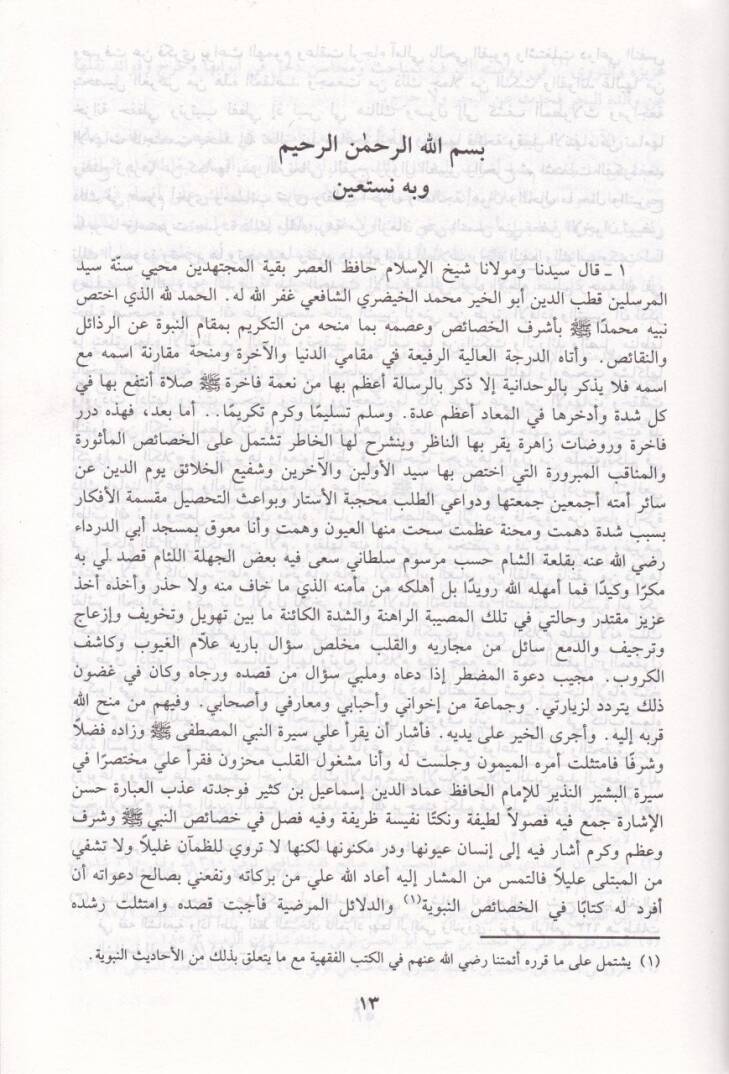 بسم الله الرحمٰن الرحيم
وبه نستعين
١ ـ قال سيدنا ومولانا شيخ الإسلام حافظ العصر بقية المجتهدين محيي سنّة سيد
المرسلين قطب الدين أبو الخير محمد الخيضري الشافعي غفر الله له. الحمد لله الذي اختص
نبيه محمدًا ﷺ بأشرف الخصائص وعصمه بما منحه من التكريم بمقام النبوة عن الرذائل
والنقائص. وأتاه الدرجة العالية الرفيعة في مقامي الدنيا والآخرة ومنحة مقارنة اسمه مع
اسمه فلا يذكر بالوحدانية إلا ذكر بالرسالة أعظم بها من نعمة فاخرة ﷺ صلاة أنتفع بها في
كل شدة وأدخرها في المعاد أعظم عدة. وسلم تسليمًا وكرم تكريمًا.. أما بعد، فهذه درر
فاخرة وروضات زاهرة يقر بها الناظر وينشرح لها الخاطر تشتمل على الخصائص المأثورة
والمناقب المبرورة التي اختص بها سيد الأولين والآخرين وشفيع الخلائق يوم الدين عن
سائر أمته أجمعين جمعتها ودواعي الطلب محجبة الأستار وبواعث التحصيل مقسمة الأفكار
بسبب شدة دهمت ومحنة عظمت سحت منها العيون وهمت وأنا معوق بمسجد أبي الدرداء
رضي الله عنه بقلعة الشام حسب مرسوم سلطاني سعى فيه بعض الجهلة اللئام قصد لي به
مكرًا وكيدًا فما أمهله الله رويدًا بل أهلكه من مأمنه الذي ما خاف منه ولا حذر وأخذه أخذ
عزيز مقتدر وحالتي في تلك المصيبة الراهنة والشدة الكائنة ما بين تهويل وتخويف وإزعاج
وترجيف والدمع سائل من مجاريه والقلب مخلص سؤال باريه علّام الغيوب وكاشف
الكروب. مجيب دعوة المضطر إذا دعاه وملبي سؤال من قصده ورجاه وكان في غضون
ذلك يتردد لزيارتي. وجماعة من إخواني وأحبابي ومعارفي وأصحابي. وفيهم من منح الله
قربه إليه. وأجرى الخير على يديه. فأشار أن يقرأ علي سيرة النبي المصطفى ﷺ وزاده فضلًا
وشرفًا فامتثلت أمره الميمون وجلست له وأنا مشغول القلب محزون فقرأ علي مختصرًا في
سيرة البشير النذير للإمام الحافظ عماد الدين إسماعيل بن كثير فوجدته عذب العبارة حسن
الإشارة جمع فيه فصولًا لطيفة ونكتًا نفيسة ظريفة وفيه فصل في خصائص النبي ﷺ وشرف
وعظم وكرم أشار فيه إلى إنسان عيونها ودر مكنونها لكنها لا تروي للظمآن غليلًا ولا تشفي
من المبتلى عليلًا فالتمس من المشار إليه أعاد الله علي من بركاته ونفعني بصالح دعواته أن
أفرد له كتابًا في الخصائص النبوية(١) والدلائل المرضية فأجبت قصده وامتثلت رشده
(١) يشتمل على ما قرره أئمتنا رضي الله عنهم في الكتب الفقهية مع ما يتعلق بذلك من الأحاديث النبوية.
١٣